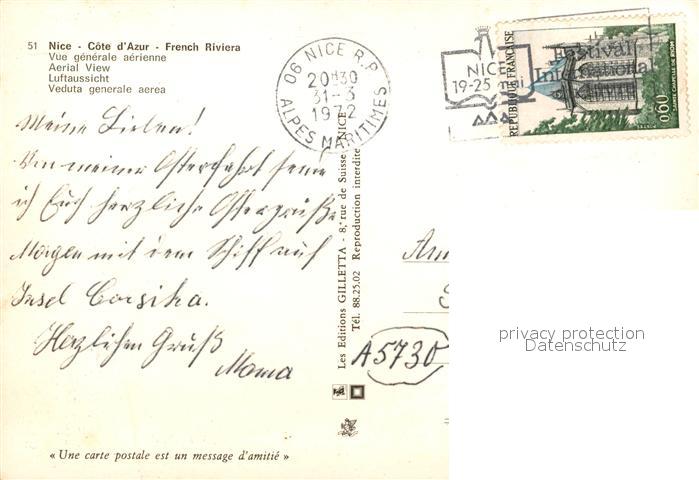 51 Nice - Côte d'Azur - French Riviera
Vue générale aérienne
Aerial View
Luftaussicht
Veduta generale aerea
06 NICE R.P.
20H30
31-3
1972
ALPES MARITIMES
NICE
19-25 mai
Festival
International
du Livre
REPUBLIQUE FRANÇAISE
0,60
Meine Lieben!
Von meiner Osterfahrt sende
ich Euch herzliche Ostergrüße
Morgen mit dem Schiff auf
Insel Corsika.
Herzlichen Gruß
Moma
Les Editions GILLETTA - 8, rue de Suisse, NICE
Tél. 88.25.02 Reproduction interdite
A5730
privacy protection
Datenschutz
« Une carte postale est un message d'amitié »